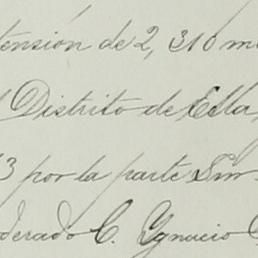 tensión de 2,310 m
Distrito de Etla,
3 por la parte Sur
derado C. Ygnacio